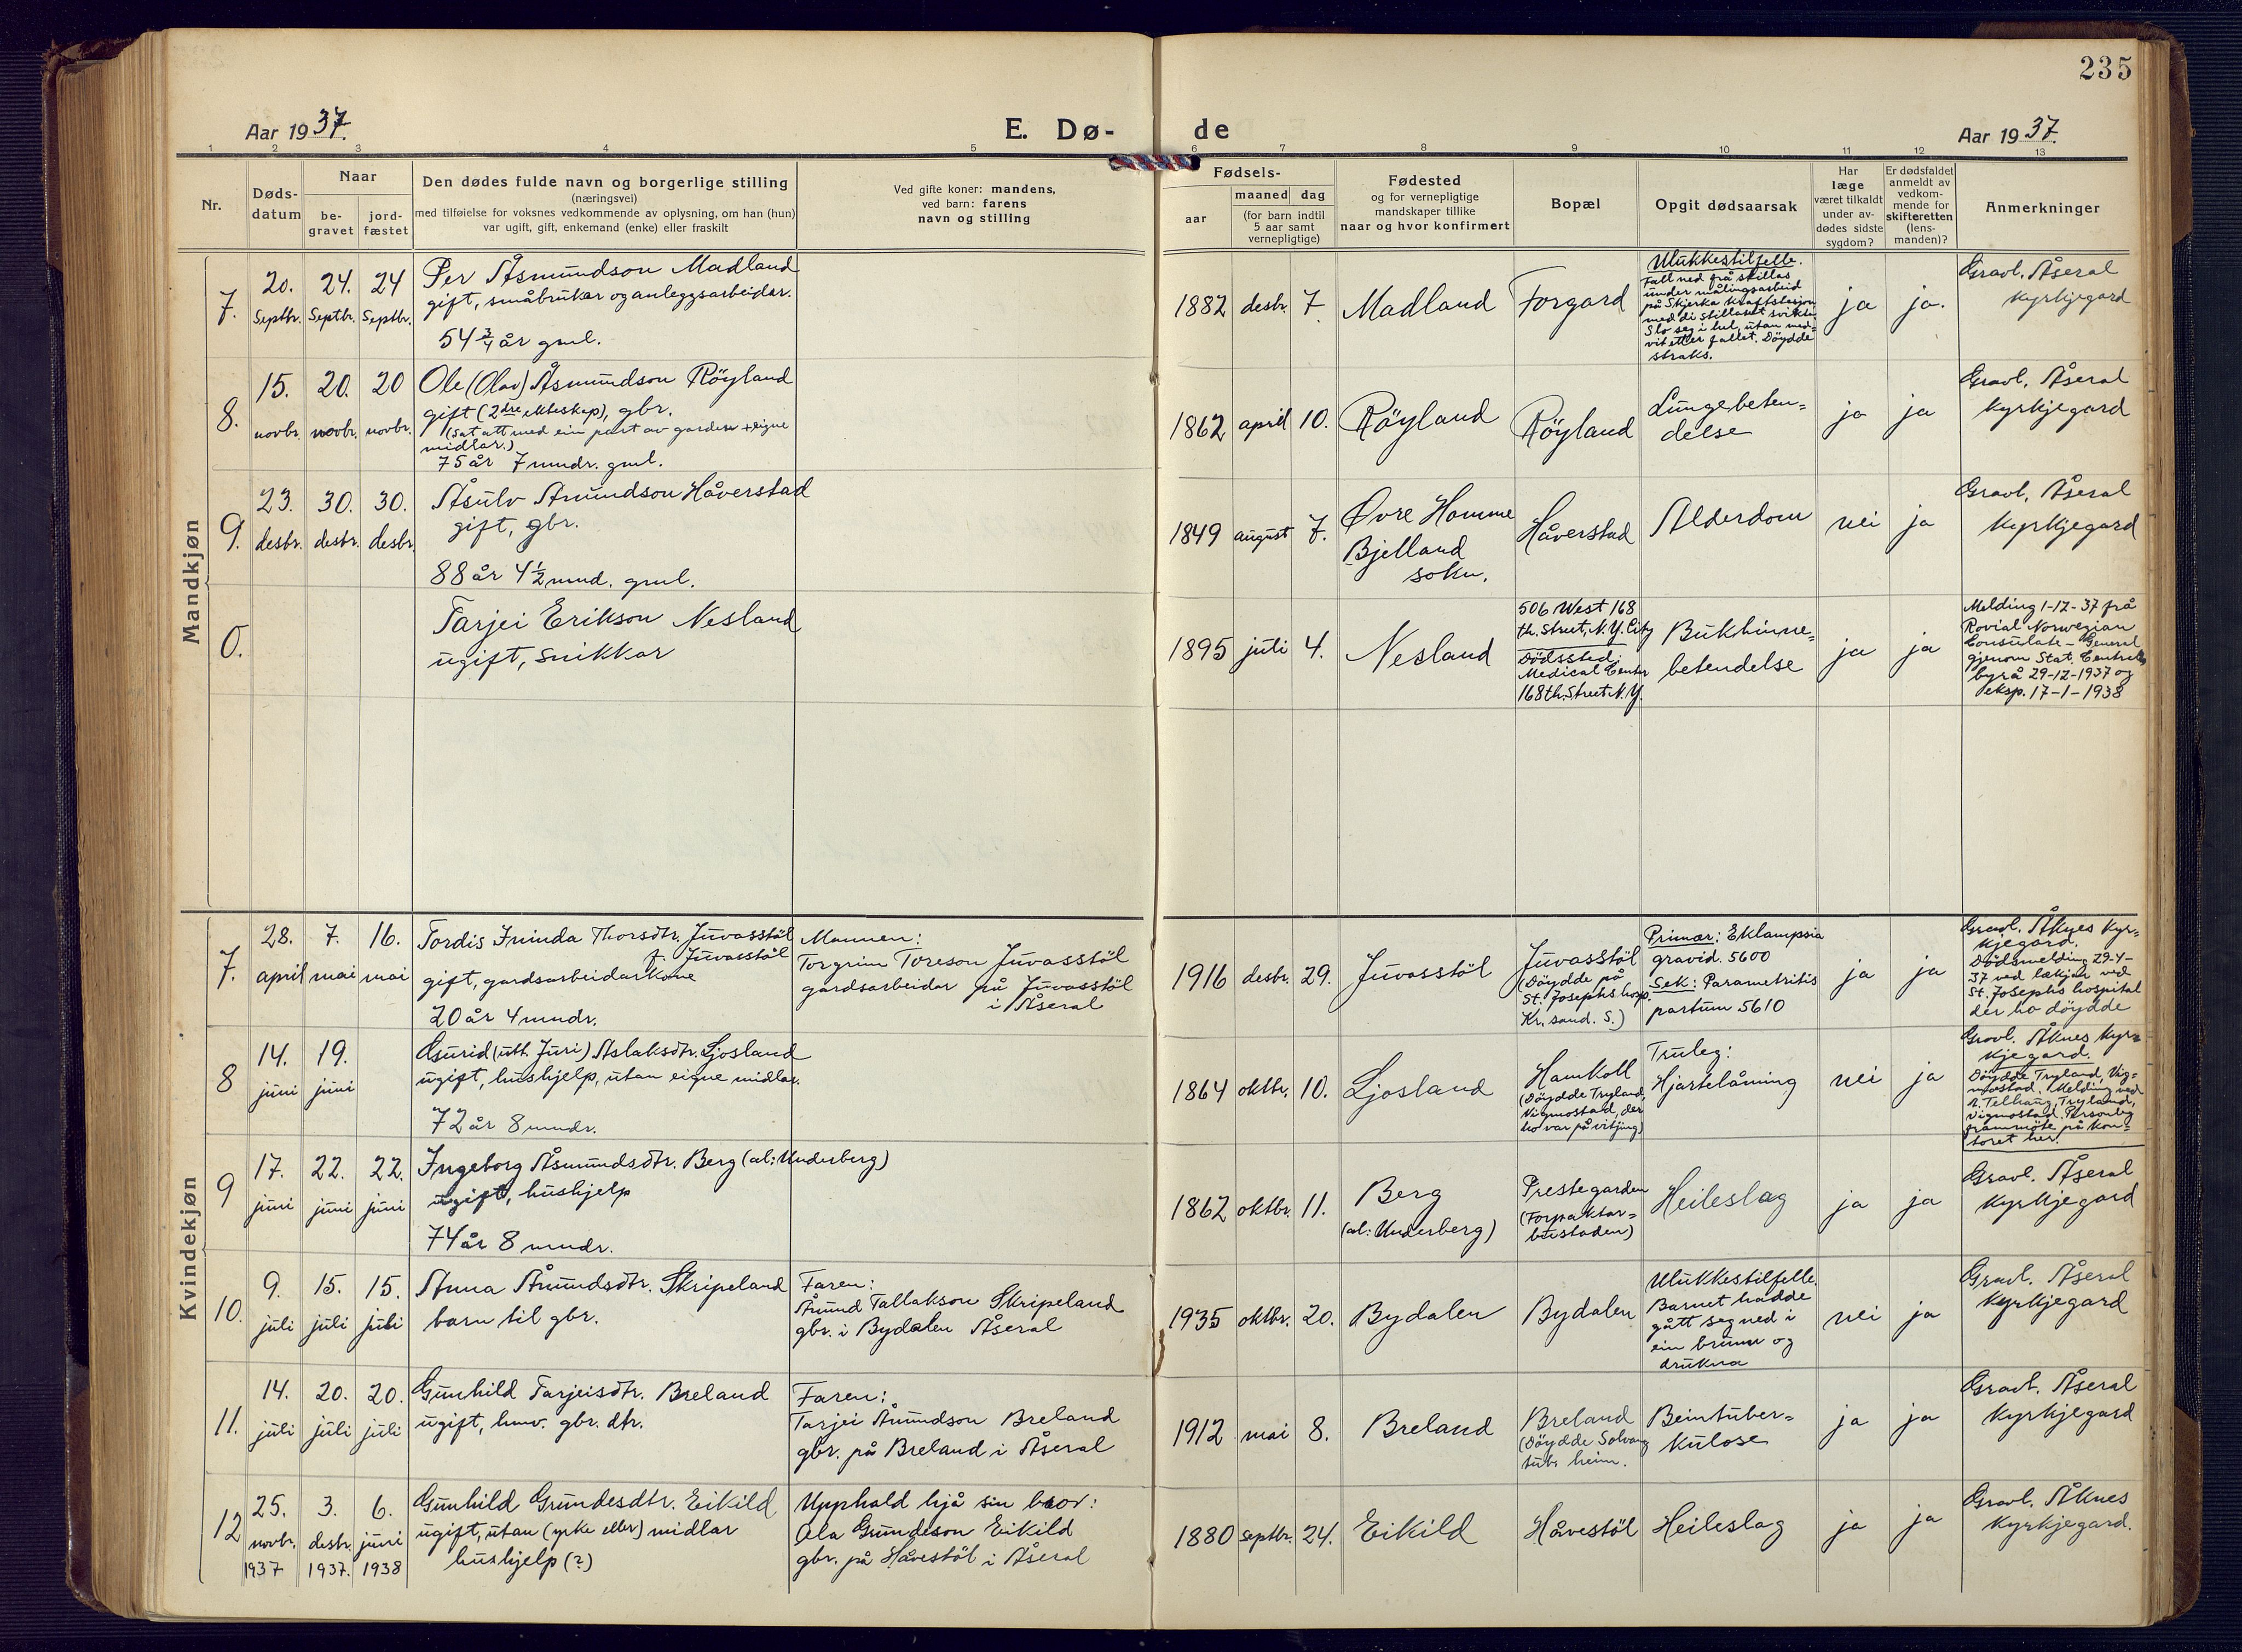 235
Aar 1937.
E. Dø-
de
Aar 1937.
1 2 3 4 5 6 7 8 9 10 11 12 13
Nr.
Døds-
datum
Naar
be-
gravet
jord-
fæstet
Den dødes fulde navn og borgerlige stilling
(næringsvei)
med tilføielse for voksnes vedkommende av oplysning, om han (hun)
var ugift, gift, enkemand (enke) eller fraskilt
Ved gifte koner: mandens,
ved barn: farens
navn og stilling
Fødsels-
aar
maaned dag
(for barn indtil
5 aar samt
vernepligtige)
Fødested
og for vernepligtige
mandskaper tillike
naar og hvor konfirmert
Bopæl
Opgit dødsaarsak
Har
læge
været tilkaldt
under av-
dødes sidste
sygdom?
Er dødsfaldet
anmeldt av
vedkom-
mende for
skifteretten
(lens-
manden)?
Anmerkninger
Mandkjøn
7.
20.
Septbr.
24.
Septbr.
24
Septbr.
Per Åsmundson Madland
gift, småbrukar og anleggsarbeidar.
54 3/4 år gml.
1882 desbr. 7.
Madland
Forgard
Ulukkestilfelle.
Fall ned frå stillas
under målingsarbeid
på Skjerka Kraftstasjon
med di stillaset svikta
Slo seg i hel, utan med-
vit etter fallet. Döydde
straks.
ja
ja.
Gravl. Åseral
Kyrkjegard
8.
15.
novbr.
20.
novbr.
20
novbr.
Ole (Olav) Åsmundson Röyland
gift (2dre ekteskap), gbr.
(Sat att med ein part av garden + eigne
midlar.)
75 år 7 mndr. gml.
1862 april 10.
Röyland
Röyland
Lungebeten-
delse
ja
ja
Gravl. Åseral
Kyrkjegard
9.
23.
desbr.
30.
desbr.
30.
desbr.
Åsulv Åmundson Håverstad
gift, gbr.
88 år 4 1/2 mnd. gml.
1849 august 7.
Øvre Homme
Bjelland
sokn.
Håverstad
Alderdom
nei
ja
Gravl, Åseral
Kyrkjegard
0.
Tarjei Erikson Nesland
ugift, snikkar
1895 juli 4.
Nesland
506 West 168
th. Street, N.Y. City
Dödsstad:
Medical Center
168th. Street N.Y.
Bukhinne-
betendelse
ja
ja
Melding 1-12-37 frå
Rovial Norwegian
Consulate - General
gjenom Stat. Centralb
byrå 29-12-1937 og
eksp. 17-1-1938
Kvindekjøn
7.
28.
april
7.
mai
16.
mai
Tordis Irninda Thorsdtr. Juvasstöl
f. Juvasstöl
gift, gardsarbeidarkone
20 år 4 mndr.
Mannen:
Torgrim Toreson Juvasstöl
gardsarbeidar på Juvasstöl
i Åseral
1916 desbr. 29.
Juvasstöl
Juvasstöl
(Döydde på
St. Josephs hosp.
Kr. sand. S.)
Primær: Eklampsia
gravid. 5600
Sek: Parametritis
partum 5610
ja
ja
Gravl. Åknes Kyr-
kjegard.
Dödsmelding 29-4-
37 ved lækjar ved
St. Josephs hospital
der ho döydde
8
14.
juni
19.
juni
Gurid (utt. Juri) Aslaksdtr. Ljosland
ugift, hushjelp, utan eigne midlar.
72 år 8 mndr.
1864 oktbr. 10.
Ljosland
Hamkoll
(Döydde Tryland,
Vigmostad, der
ho var på vitjing)
Truleg:
Hjartelåming
nei
ja
Gravl. Åknes Kyr-
kjegard.
Döydde Tryland, Vig-
mostad. Melding ved
Telhaug, Tryland,
Vigmostad. Personleg
frammöte på kon-
toret her.
9
17.
juni
22.
juni
22.
juni
Ingeborg Åsmundsdtr. Berg (al: Underberg)
ugift, hushjelp
74 år 8 mndr.
1862 oktbr. 11.
Berg
(al: Underberg)
Prestegarden
(Forpaktar-
bustaden)
Heileslag
ja
ja
Gravl. Åseral
Kyrkjegard
10.
9.
juli
15.
juli
15.
juli
Anna Åmundsdtr. Skripeland
barn til gbr.
Faren:
Åmund Tallakson Skripeland
gbr. i Bydalen Åseral
1935 oktbr. 20.
Bydalen
Bydalen
Ulukkestilfelle.
Barnet hadde
gått seg ned i
ein brunn og
drukna
nei
ja
Gravl. Åseral
Kyrkjegard
11.
14.
juli
20.
juli
20.
juli
Gunhild Tarjeisdtr. Breland
ugift, hmv. gbr. dtr.
Faren:
Tarjei Åmundson Breland
gbr. på Breland i Åseral
1912 mai 8.
Breland
Breland
(Döydde Solvang
tub. heim.
Beintuber-
kulose
ja
ja
Gravl. Åseral
Kyrkjegard
12
25.
novbr.
1937
3.
desbr.
1937.
6.
juni
1938
Gunhild Grundesdtr. Eikild
ugift, utan (yrke eller) midlar
hushjelp (?)
Upphald hjå sin bror:
Ola Grundeson Eikild
gbr. på Håvestöl i Åseral
1880 septbr. 24.
Eikild
Håvestöl
Heileslag
ja
ja
Gravl. Åknes
Kyrkjegard.